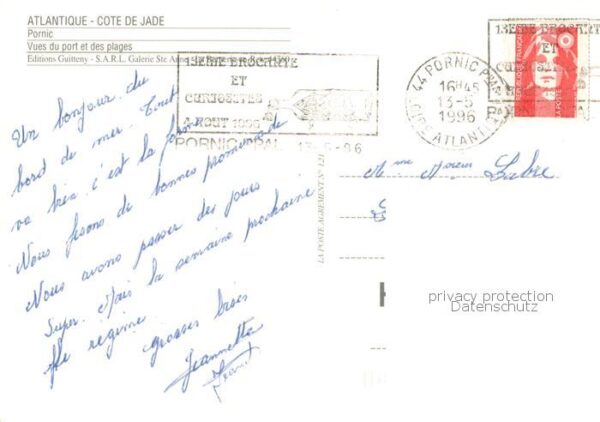 ATLANTIQUE - COTE DE JADE
Pornic
Vues du port et des plages
Editions Guitteny - S.A.R.L. Galerie Ste Anne
13EME BROCANTE
ET
CURIOSITES
4 AOUT 1996
PORNIC PAL 13-5-96
44 PORNIC PPAL
16H45
13-5
1996
LOIRE ATLANTIQUE
13EME BROCANTE
ET
Un bonjour du
bord de mer. Tout
va bien c'est la forme
Nous fesons de bonnes promenade
Nous avons passer des jours
Super. Mais la semaine prochaine
régime.
grosses bises
Jeannette
LA POSTE AGREMENT N° 421
Mme Labre
privacy protection
Datenschutz